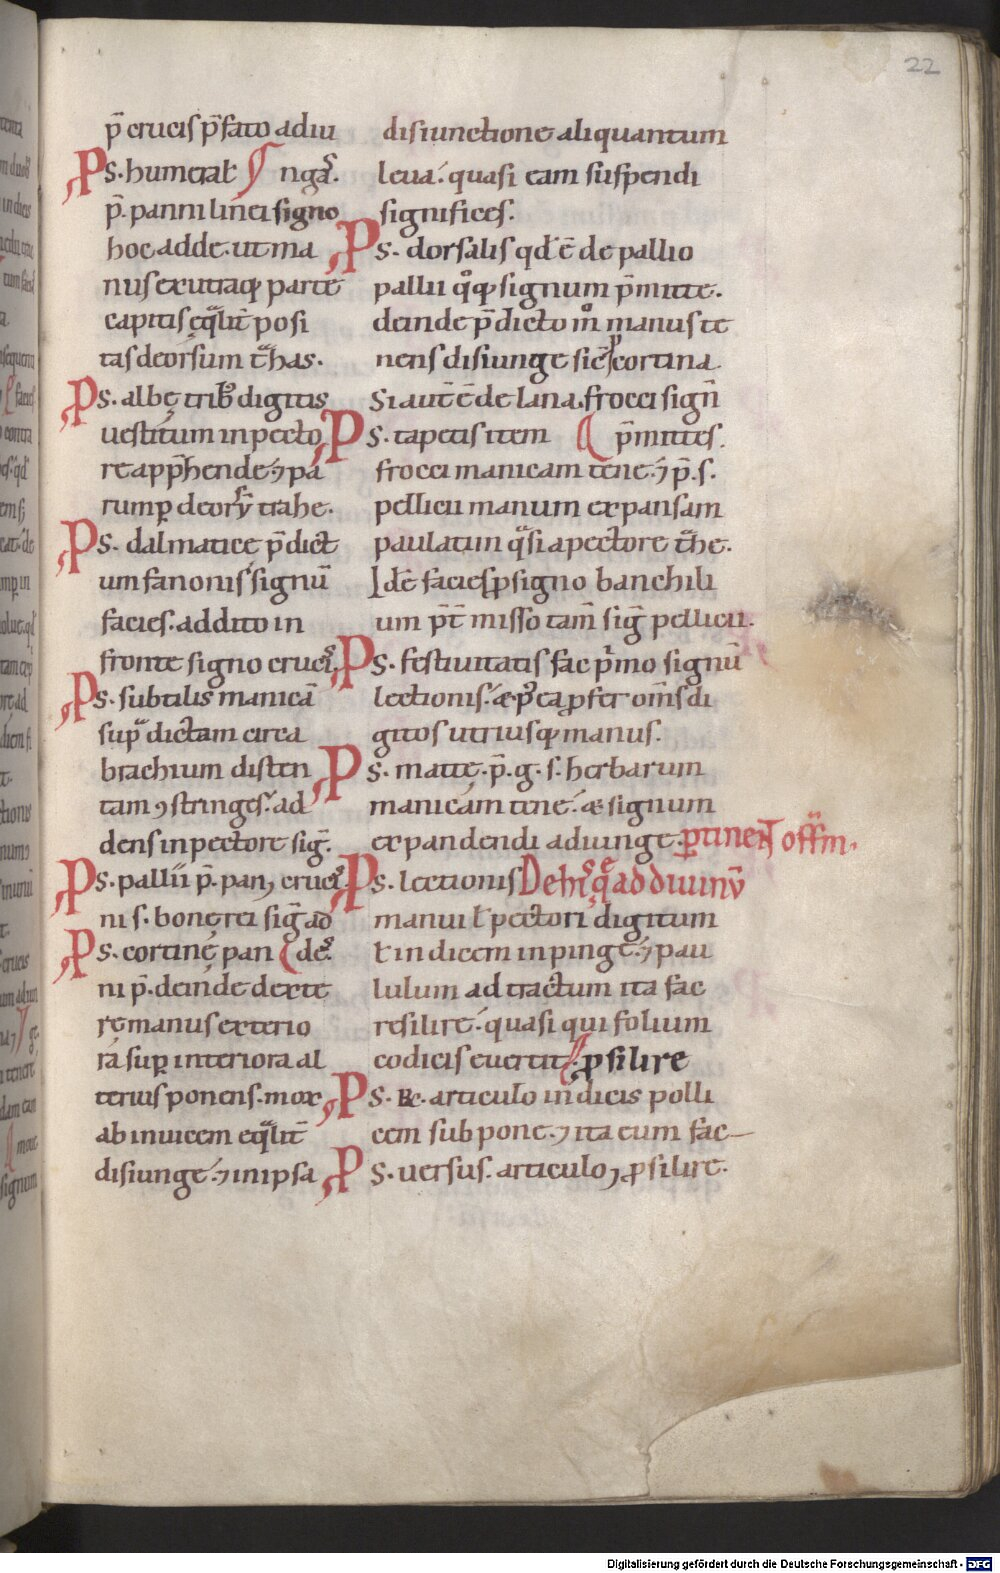 22
p̄ crucis p̄fato adiu
Ps. humeral ngas.
p̄. panni linei signo
hoc adde. ut ma
nus ex utraq; parte
capitis eq̄lit̄ posi
tas deorsum t̄has.
Ps. albę trib; digitis
uestitum in pecto
re app̄hende. ⁊ pa
rump̱ deorsū trahe.
Ps. dalmaticę p̄dict
um fanonis signū
facies. addito in
fronte signo crucis.
Ps. subtilis manicā
sup̱ dictam circa
brachium disten
tam ⁊stringes. ad
dens in pectore sig̅.
Ps. pallii p̄. pan crucis
ni s. bonę rei sig̅ ad
Ps. cortinę pan des.
ni p̄. deinde dexte
rę manus exterio
ra sup̱ interiora al
terius ponens. mox
ab inuicem eq̄lit̄
disiunge. ⁊ in ipsa
disiunctione aliquantum
leua. quasi eam suspendi
significes.
Ps. dorsalis qđ ē de pallio
pallii q̊q; signum p̄mitte.
deinde p̄dicto m̊ manus te
nens disiunge sic̄ cortina.
Si aut̄ ē de lana. frocci sign̄
Ps. tapetis item p̄mittes.
frocci manicam tene. ⁊ p̄. s.
pellicii manum expansam
paulatim q̄si a pectore t̄he.
Idē facies p̱ signo banchili
um p̄t̄ misso tam̄ sig̅ pellicii.
Ps. festiuitatis fac p̄mo signū
lectionis. & p̱ ea ꝓfer om̄s di
gitos utriusq; manus.
Ps. mattę. p̄. g. s. herbarum
manicam tene. & signum
expandendi adiunge. ptinent offm.
Ps. lectionis De his q̄ ad diuinū
manui ł pectori digitum
ł indicem inpinge. ⁊ pau
lulum adtractum ita fac
resilire. quasi qui folium
codicis euertit. ꝓsilire
Ps. ℞. articulo indicis polli
cem subpone. ⁊ ita eum fac
Ps. uersus. articulo ꝓsilire.
Digitalisierung gefördert durch die Deutsche Forschungsgemeinschaft - DFG